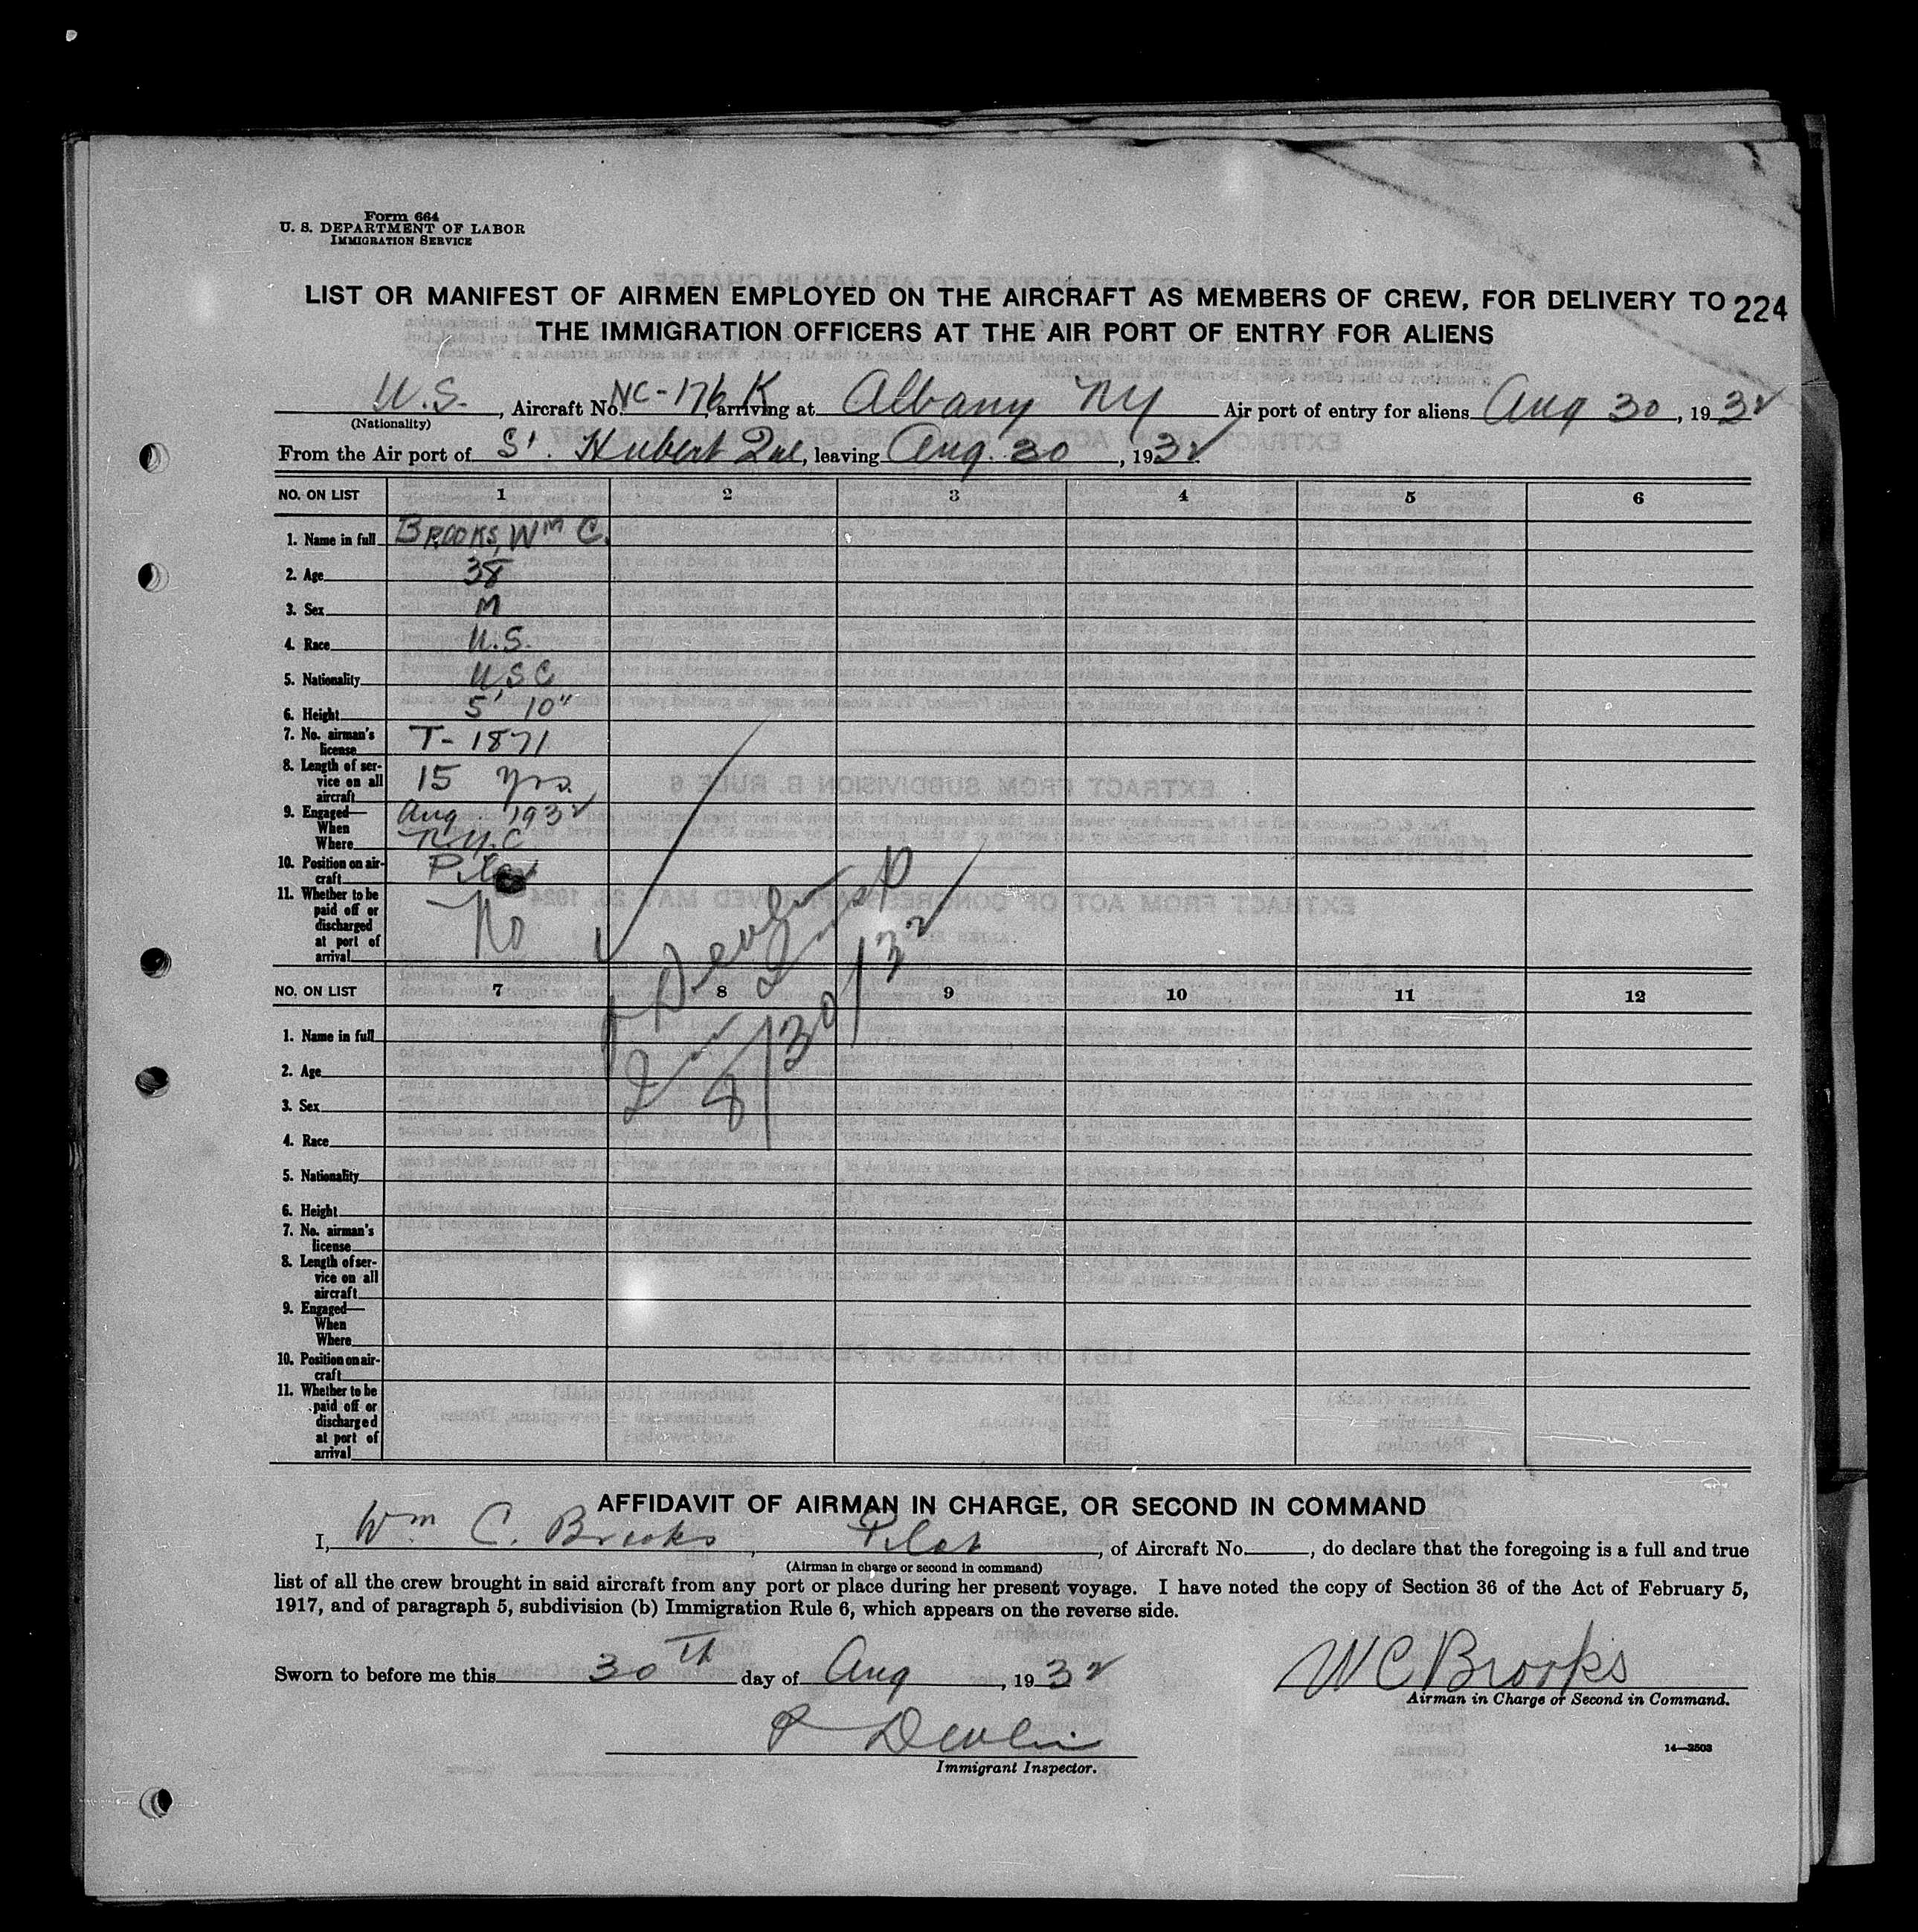 Form 664
U. S. DEPARTMENT OF LABOR
IMMIGRATION SERVICE
LIST OR MANIFEST OF AIRMEN EMPLOYED ON THE AIRCRAFT AS MEMBERS OF CREW, FOR DELIVERY TO 224
THE IMMIGRATION OFFICERS AT THE AIR PORT OF ENTRY FOR ALIENS
U.S., Aircraft No. NC-176K, arriving at Albany NY Air port of entry for aliens Aug 30, 1932
(Nationality)
From the Air port of St. Hubert Que, leaving Aug. 30, 1932
NO. ON LIST 1 2 3 4 5 6
1. Name in full BROOKS, Wm C.
2. Age 38
3. Sex M
4. Race U.S.
5. Nationality USC
6. Height 5' 10"
7. No. airman's
license T-1871
8. Length of ser-
vice on all 15 yrs.
aircraft
9. Engaged— Aug 1932
When
Where N.Y.C
10. Position on air- Pilot
craft
11. Whether to be
paid off or
discharged No
at port of
arrival
P Devlin
Insp
8/30/32
NO. ON LIST 7 8 9 10 11 12
1. Name in full
2. Age
3. Sex
4. Race
5. Nationality
6. Height
7. No. airman's
license
8. Length of ser-
vice on all
aircraft
9. Engaged—
When
Where
10. Position on air-
craft
11. Whether to be
paid off or
discharged
at port of
arrival
AFFIDAVIT OF AIRMAN IN CHARGE, OR SECOND IN COMMAND
I, Wm C. Brooks, Pilot, of Aircraft No. , do declare that the foregoing is a full and true
(Airman in charge or second in command)
list of all the crew brought in said aircraft from any port or place during her present voyage. I have noted the copy of Section 36 of the Act of February 5,
1917, and of paragraph 5, subdivision (b) Immigration Rule 6, which appears on the reverse side.
Sworn to before me this 30th day of Aug, 1932
W C Brooks
Airman in Charge or Second in Command.
P Devlin
Immigrant Inspector.
14—3503